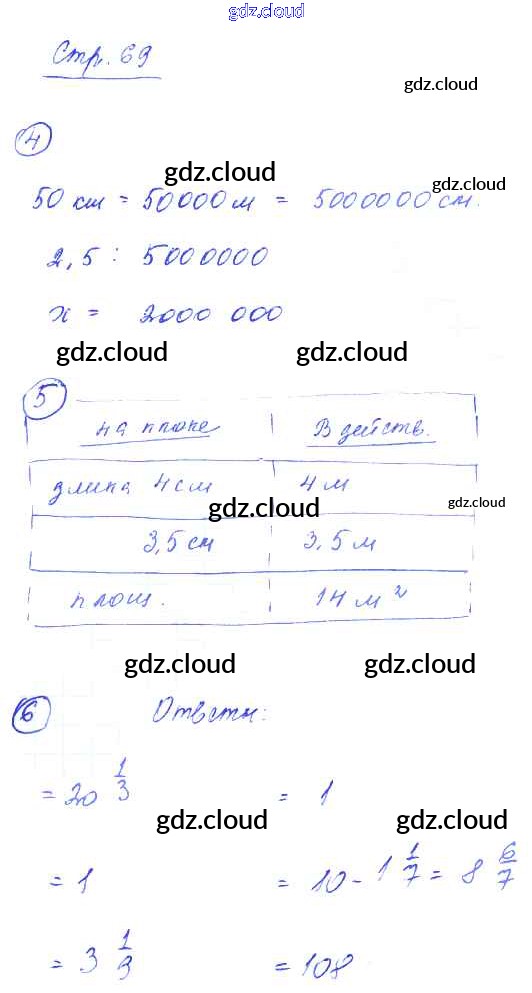 gdz.cloud
Стр. 69
gdz.cloud
4
gdz.cloud
gdz.cloud
50 км = 50000 м = 5000000 см.
2,5 : 5000000
x = 2000 000
gdz.cloud gdz.cloud
5
на плане В действ.
длина 4 см 4 м
gdz.cloud gdz.cloud
3,5 см 3,5 м
площ. 14 м²
gdz.cloud gdz.cloud
6 Ответы:
= 20 1/3 = 1
gdz.cloud gdz.cloud
= 1 = 10 - 1 1/7 = 8 6/7
= 3 1/3 = 108
gdz.cloud gdz.cloud